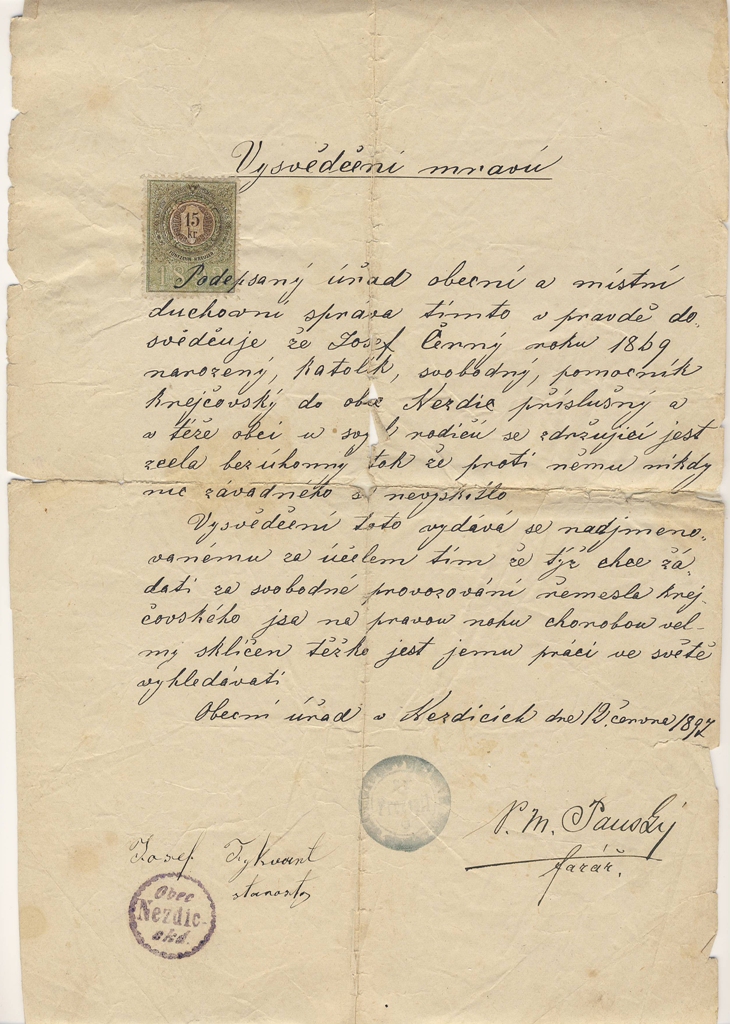 Vysvědčení mravů
15
kr.
Podepsaný úřad obecní a místní
duchovní správa tímto v pravdě do,
svědčuje že Josef Černý roku 1869
narozený, katolík, svobodný, pomocník
krejčovský do obce Nezdic příslušný a
v téže obci u svých rodičů se zdržující jest
zcela bezúhonný tak že proti němu nikdy
nic závadného se nevyskitlo
Vysvědčení toto vydává se nadjmeno,
vanému za účelem tím že týž chce žá,
dati za svobodné provozování řemesla krej,
čovského jsa na pravou nohu chorobou vel,
my sklíčen těžko jest jemu práci ve světě
vyhledávati
Obecní úřad v Nezdicích dne 12. června 1897
P. M. Pauský
farář.
Josef Tykvart
starosta
Obec
Nezdic-
ská.